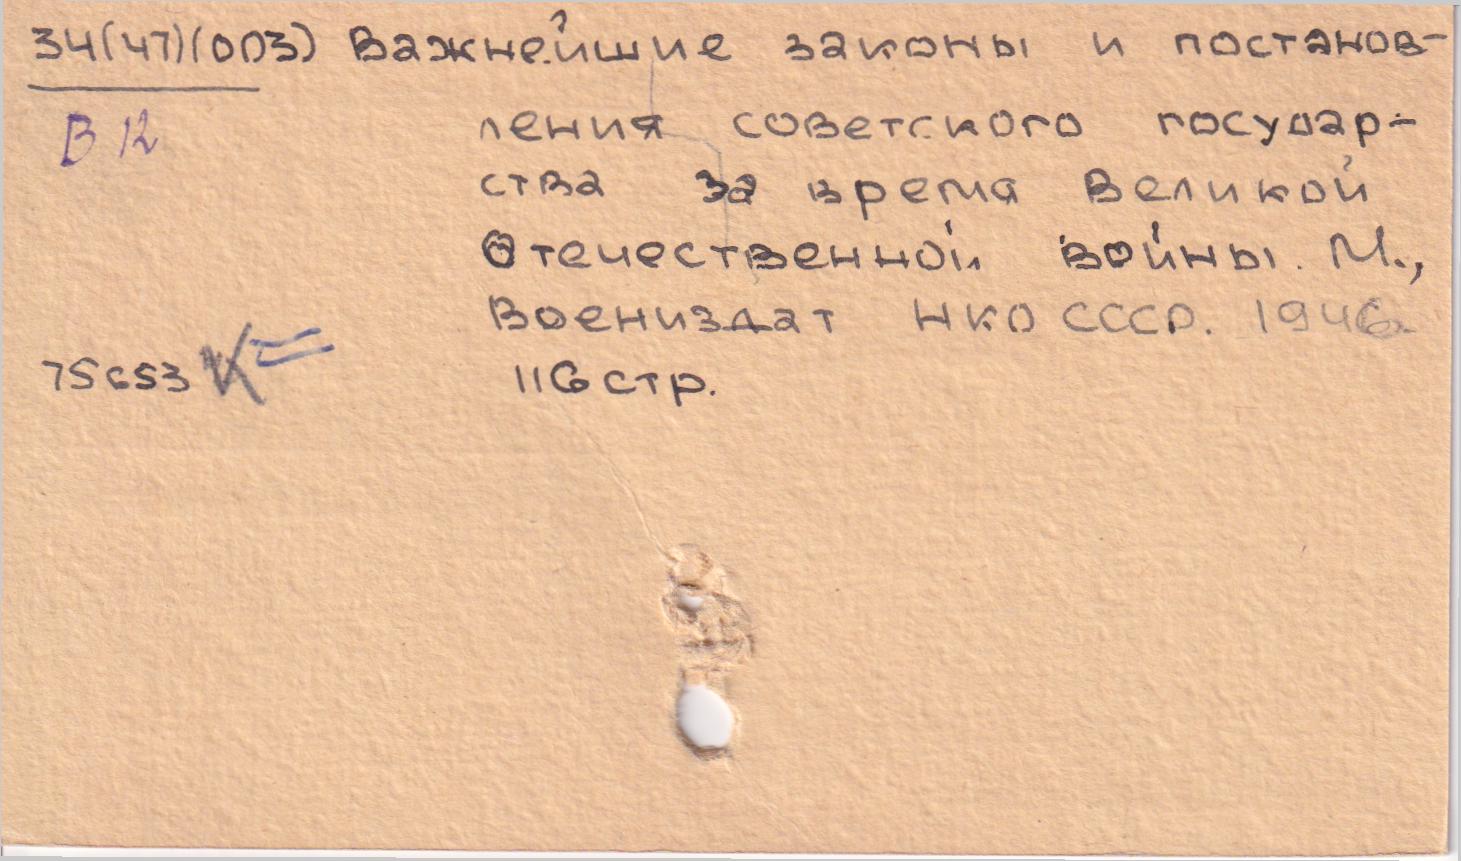 34(47)(003) Важнейшие законы и постанов-
В 12
ления советского государ-
ства за время Великой
Отечественной войны. М.,
Воениздат НКО СССР. 1946.
75653 К
116 стр.